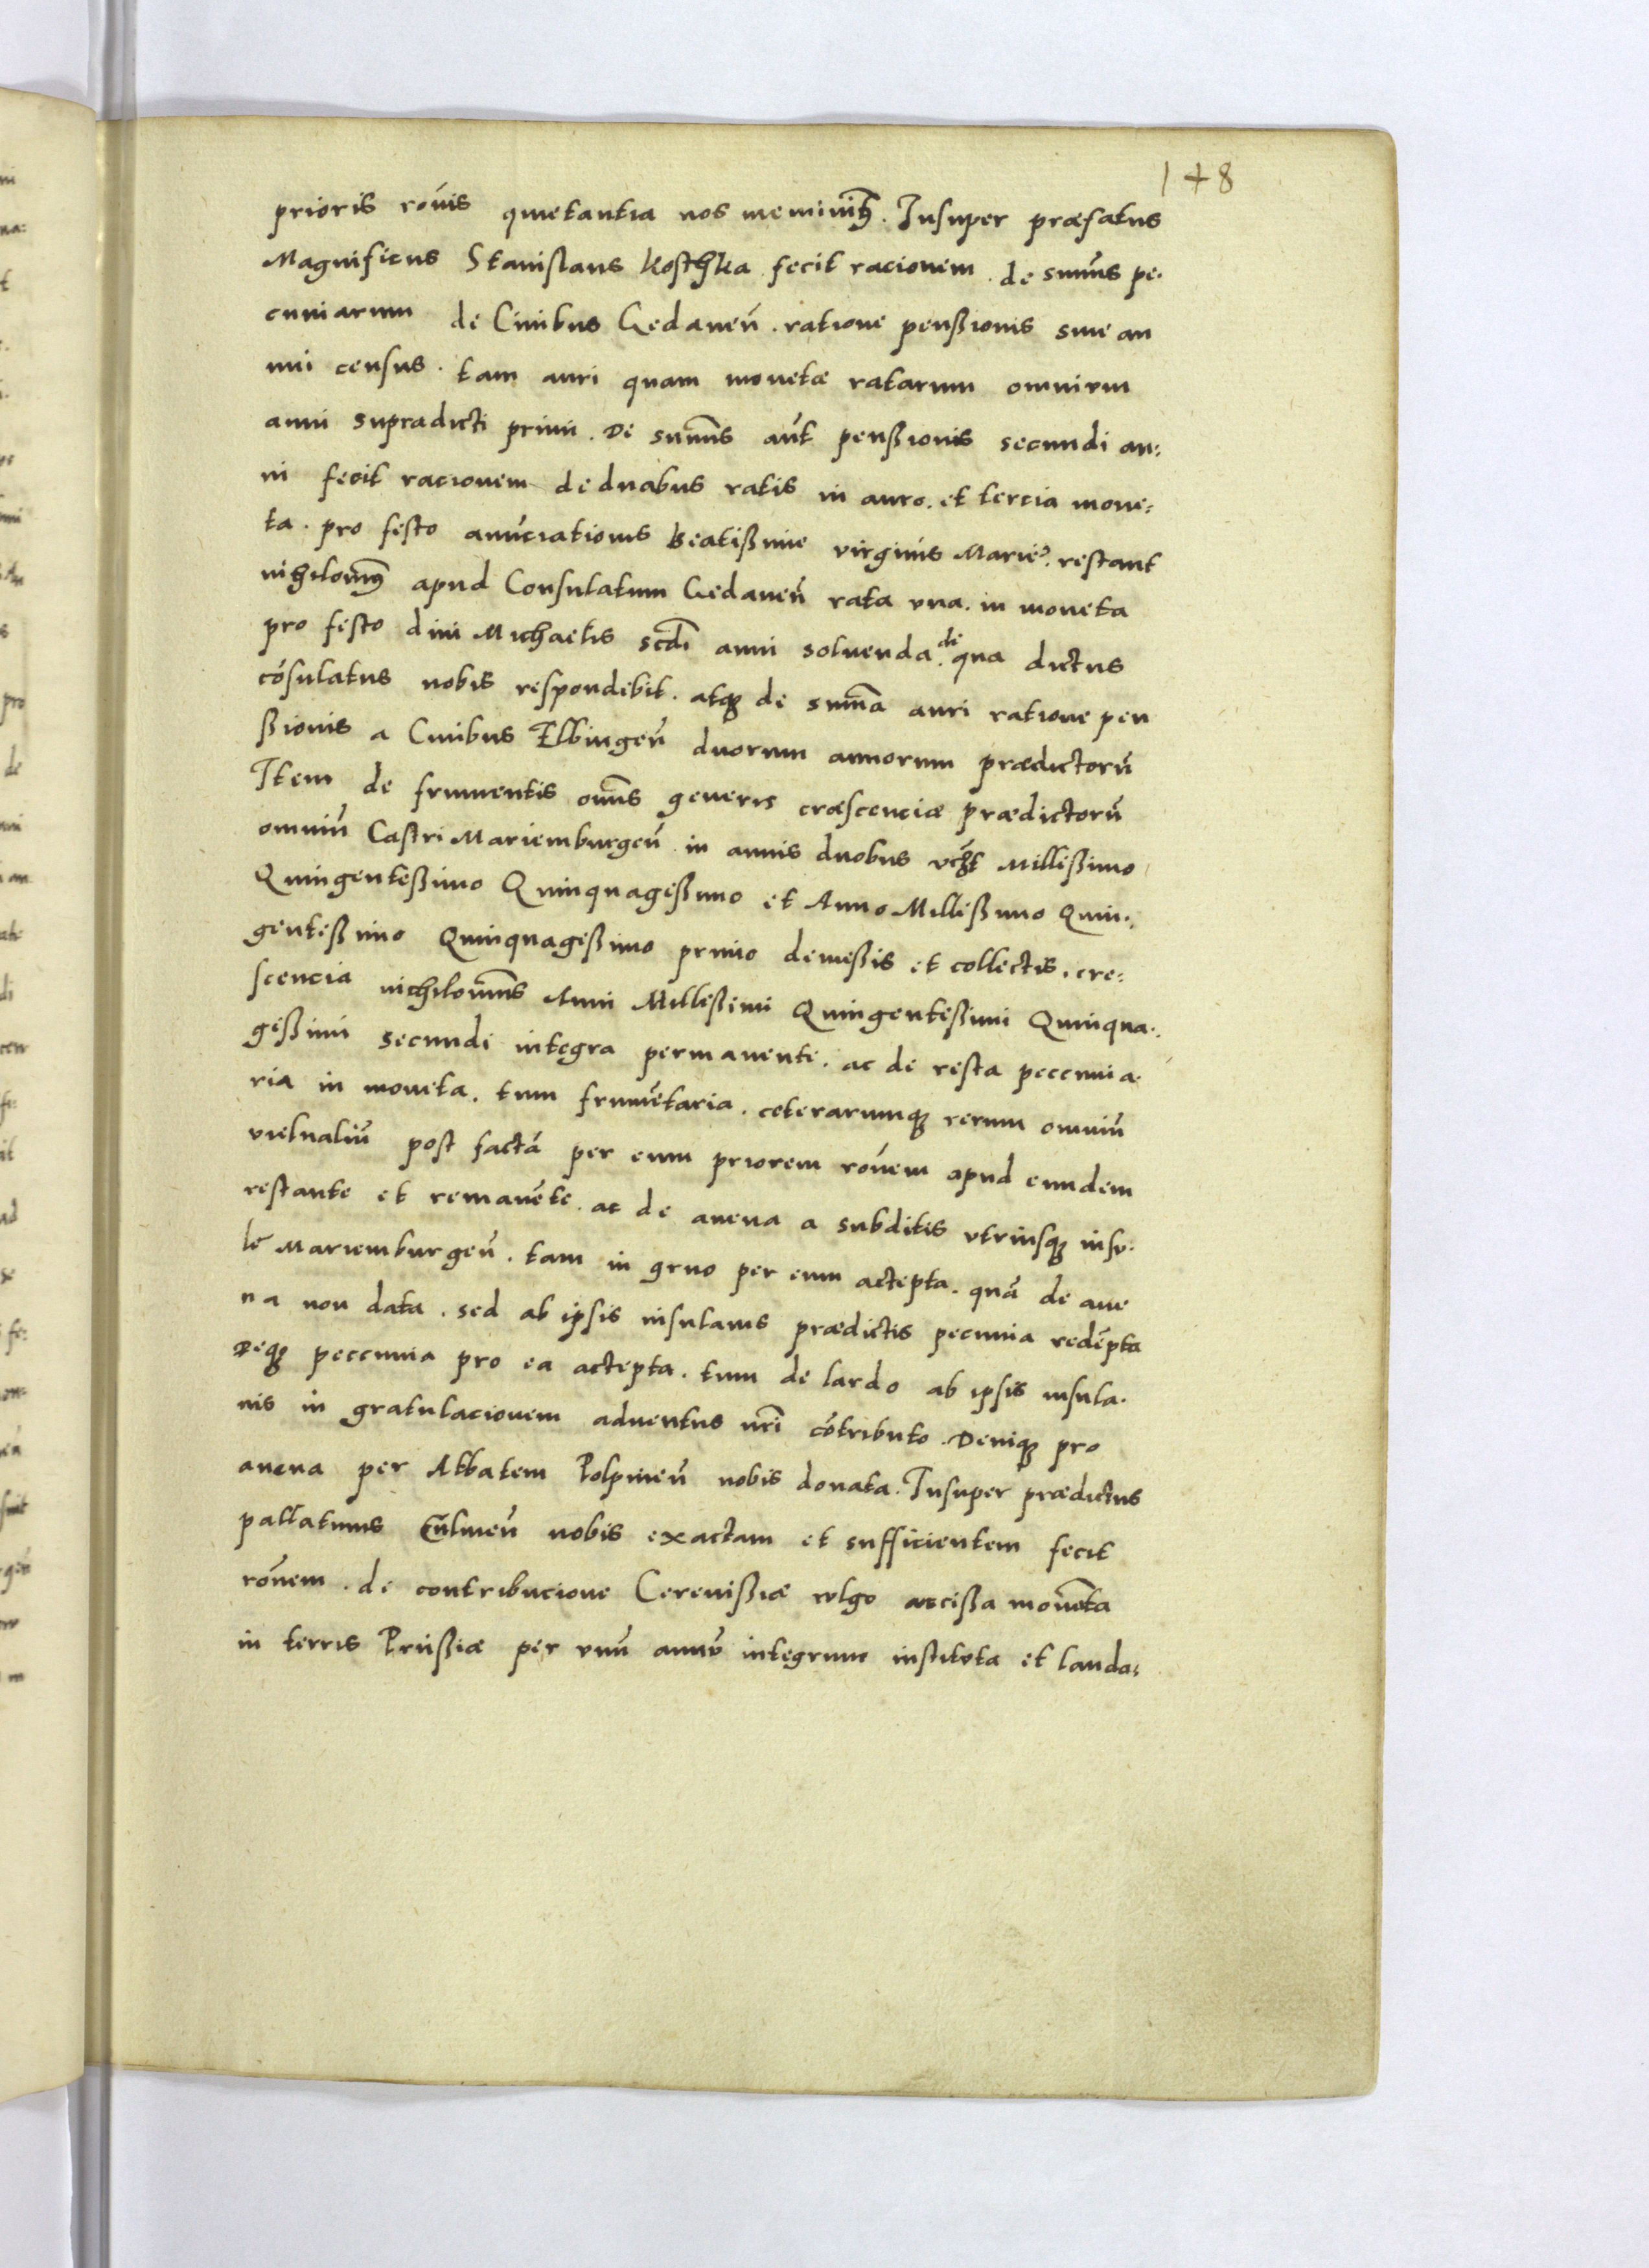 178
prioris rõnis quietantia nos meminim9. Insuper præfatus
Magnificus Stanislaus Kosthka fecit racionem de sum̃is pe-
cuniarum de Ciuibus Gedaneñ. ratione penßionis siue an
nui census. tam auri quam monetæ ratarum omnium
anni supradicti primi. De sum̃is aũt penßionis secundi an:
ni fecit racionem de duabus ratis in auro. et tercia mone:
ta. pro festo anũciationis Beatißimæ virginis Mariæ. restant
nihilomin9 apud Consulatum Gedaneñ rata vna. in moneta
pro festo diui Michaelis scđi anni soluenda. de qua dictus
cõsulatus nobis respondebit. atq3 de sum̃a auri ratione pen
ßionis a Ciuibus Elbingeñ duorum annorum prædictorũ
Item de frumentis om̃is generis cræscenciæ prædictorũ
omniũ Castri Mariemburgeñ in annis duobus vcʒt Millißimo
Quingentißimo Quinquagißimo et Anno Millißimo Quin:
gentißimo Quinquagißimo primo demeßis et collectis. cre:
scencia nichilomin9 Anni Millißimi Quingentißimi Quinqua:
gißimi secundi integra permanente. ac de resta peccunia
ria in moneta. tum frumẽtaria. ceterarumq3 rerum omniũ
victualiũ post factã per eum priorem rõnem apud eundem
restante et remanẽte. ac de auena a subditis vtriusq3 insu-
læ Mariemburgeñ. tam in grno per eum actepta. quã de aue
na non data. sed ab ipsis insulanis prædictis pecunia redẽpta
Deq3 peccunia pro ea actepta. tum de lardo ab ipsis insula-
nis in gratulacionem aduentus nr̃i cõtributo. Deniq3 pro
auena per Abbatem Polpineñ nobis donata. Insuper prædictus
pallatinus Culmeñ nobis exactam et sufficientem fecit
rõnem. de contribucione Cereuißiæ vulgo accißa monẽta
in terris Prußiæ per vnũ annũ integrum instituta et lauda: